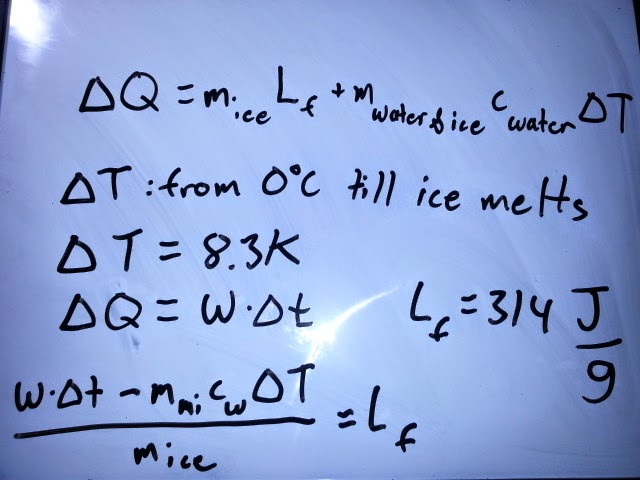 ΔQ = m ice L f + m water & ice c water ΔT
ΔT : from 0°C till ice melts
ΔT = 8.3K
ΔQ = W·Δt L f = 314 J/g
W·Δt - m mi c w ΔT / m ice = L f